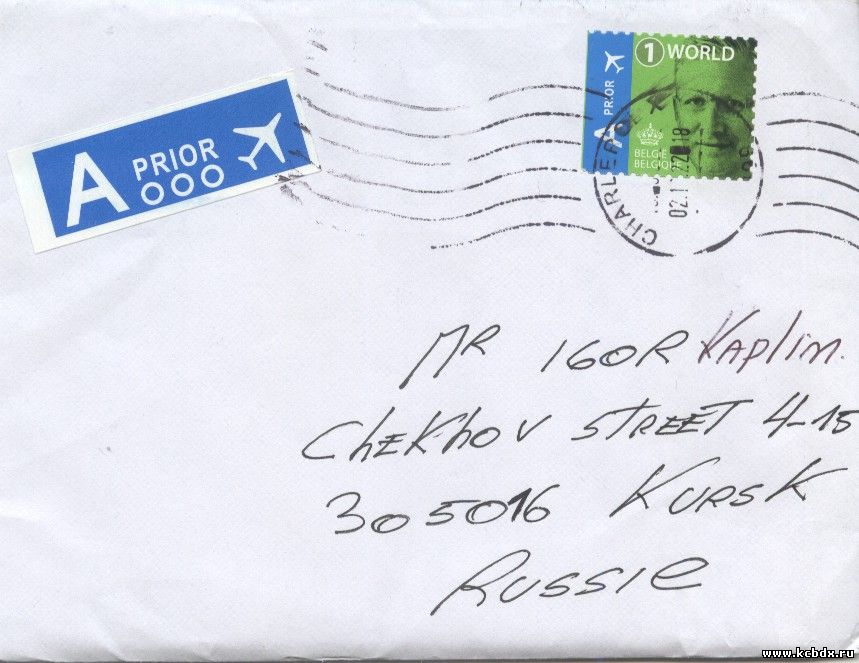 1 WORLD
A PRIOR
BELGIË
BELGIQUE
CHARLEROI X
02.1
A PRIOR
MR IGOR Kaplin.
CheKhov STREET 4-15
305016 KURSK
RUSSIE
www.kcbdx.ru